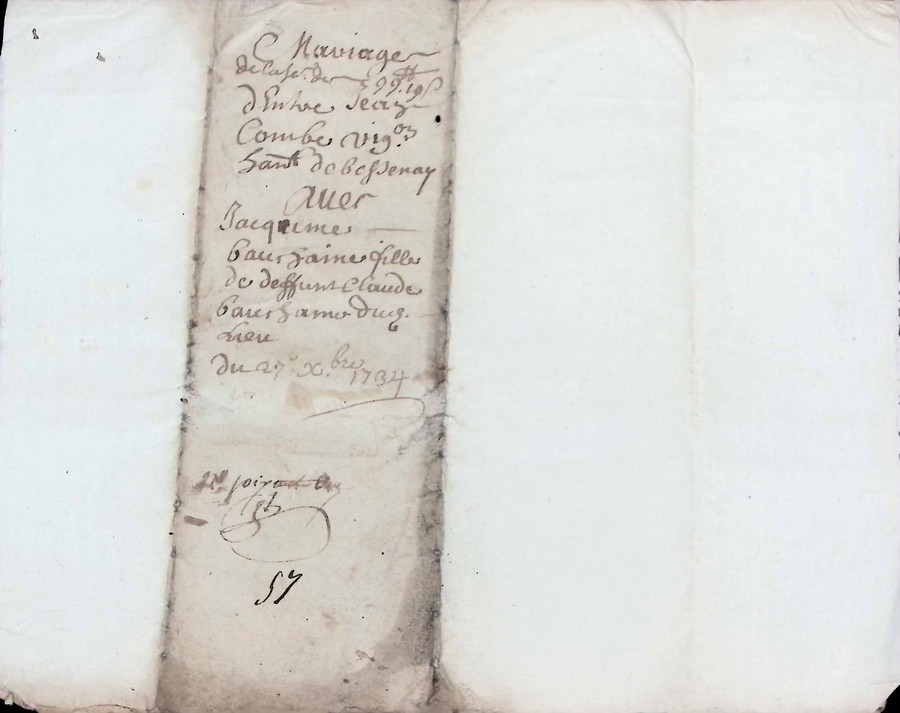 Mariage
de la so.e de 399 # 19 s
d'Entre Jean
Combe vig.on
hant de bessenay
Avec
Jacqueme
bauchaine fille
de deffunt Claude
bauchaine dud.
Lieu
Du 27e X.bre 1734
57